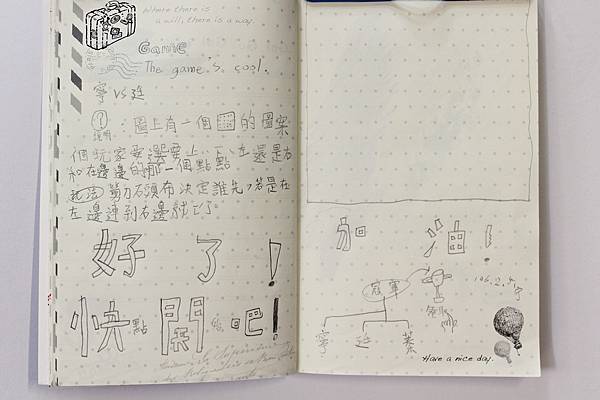 Where there is
a will, there is a way.
Game
The game is cool.
寧 vs 廷
? 說明：圖上有一個 的圖案
個玩家要選要上、下、左還是右
和在邊邊的那一個點點
剪刀石頭布決定誰先，若是在
左邊連到右邊就
好了！
快點開始吧！
加油！
冠軍
106.2.4
寧 廷
Have a nice day.